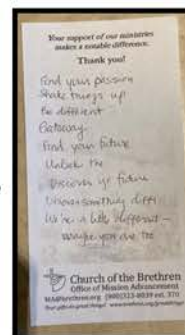 Your support of our ministries
makes a notable difference.
Thank you!
Find your passion
Shake things up
Be different
Gateway
Find your future
Unlock the
Discover yr future
something diff
We're a little different –
maybe you are too
Church of the Brethren
Office of Mission Advancement
MA@brethren.org (800)323-8039 ext. 370